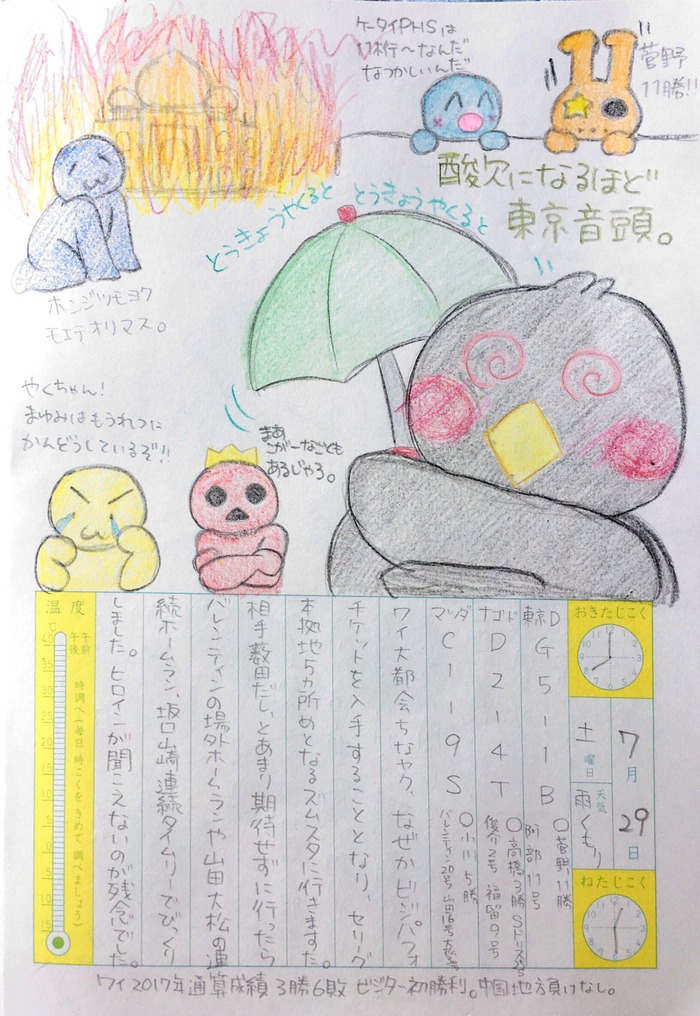 ケータイPHSは
11桁〜なんだ
なつかしいんだ
菅野
11勝!!
酸欠になるほど
東京音頭。
とうきょうやくると とうきょうやくると
ホンジツモヨク
モエテオリマス。
やくちゃん!
まゆみはもうれつに
かんどうしているぞ!!
まあ
こがーなことも
あるじゃろ。
おきたじこく
7月29日
土曜日
天気 雨くもり
ねたじこく
東京D G5ー1B ○菅野11勝 阿部11号
ナゴド D2ー4T ○高橋3勝
俊介2号 福留9号
マツダ C1ー9S ○小川5勝
バレンティン20号 山田16号
ワイ大都会ちなヤク、なぜかビジパフォ
チケットを入手することとなり、セリーグ
本拠地5ヵ所めとなるズムスタに行きました。
相手薮田だしとあまり期待せずに行ったら
バレンティンの場外ホームランや山田大松の連
続ホームラン、坂口山崎連続タイムリーでびっくり
しました。ヒロインが聞こえないのが残念でした。
温度
℃
午前
午後
時調べ(毎日 時こくを きめて 調べましょう)
40
35
30
25
20
15
10
5
0
5
10
15
ワイ2017年通算成績 3勝6敗 ビジター初勝利。中国地方負けなし。